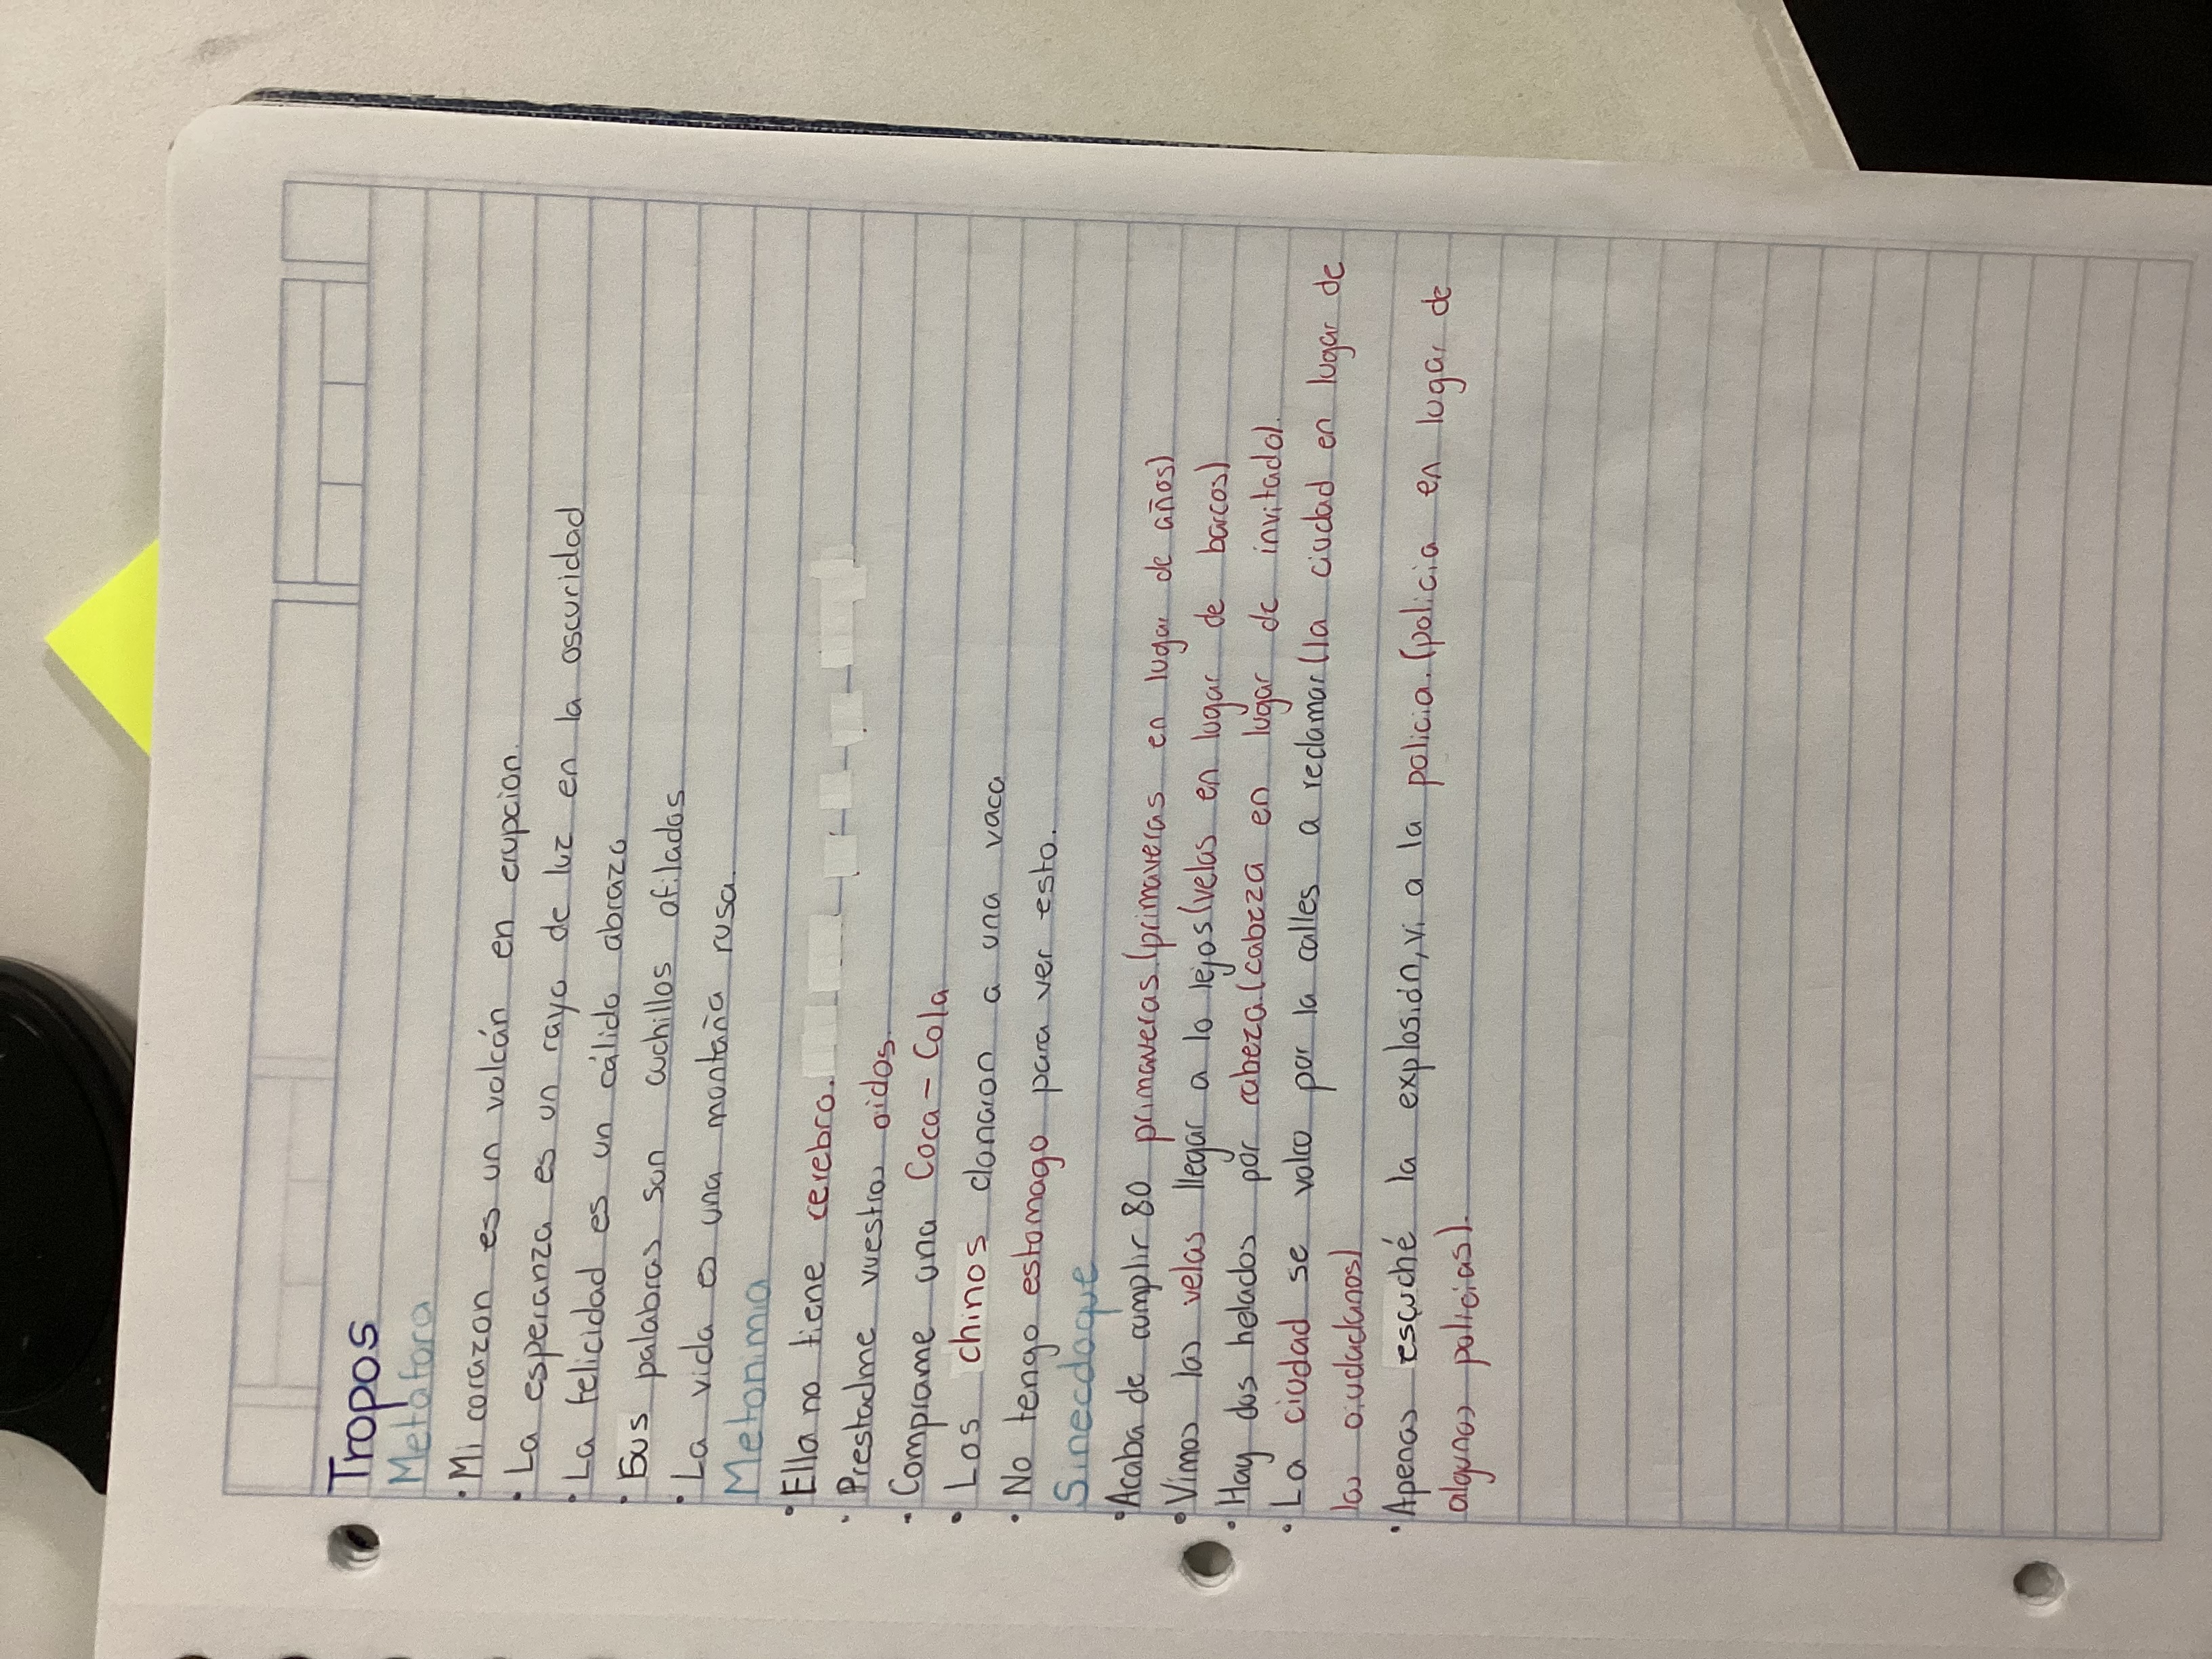 Tropos
Metáfora
• Mi corazon es un volcán en erupcion.
• La esperanza es un rayo de luz en la oscuridad
• La felicidad es un cálido abrazo
• Sus palabras son cuchillos afilados
• La vida es una montaña rusa
Metonimia
• Ella no tiene cerebro.
• Prestadme vuestros oidos.
• Comprame una Coca-Cola
• Los chinos clonaron a una vaca
• No tengo estomago para ver esto.
Sinecdoque
• Acaba de cumplir 80 primaveras.(primaveras en lugar de años)
• Vimos las velas llegar a lo lejos(velas en lugar de barcos)
• Hay dos helados por cabeza(cabeza en lugar de invitado).
• La ciudad se volco por la calles a reclamar(la ciudad en lugar de
los ciudadanos)
• Apenas escuché la explosión, vi a la policia.(policia en lugar de
algunos policias).